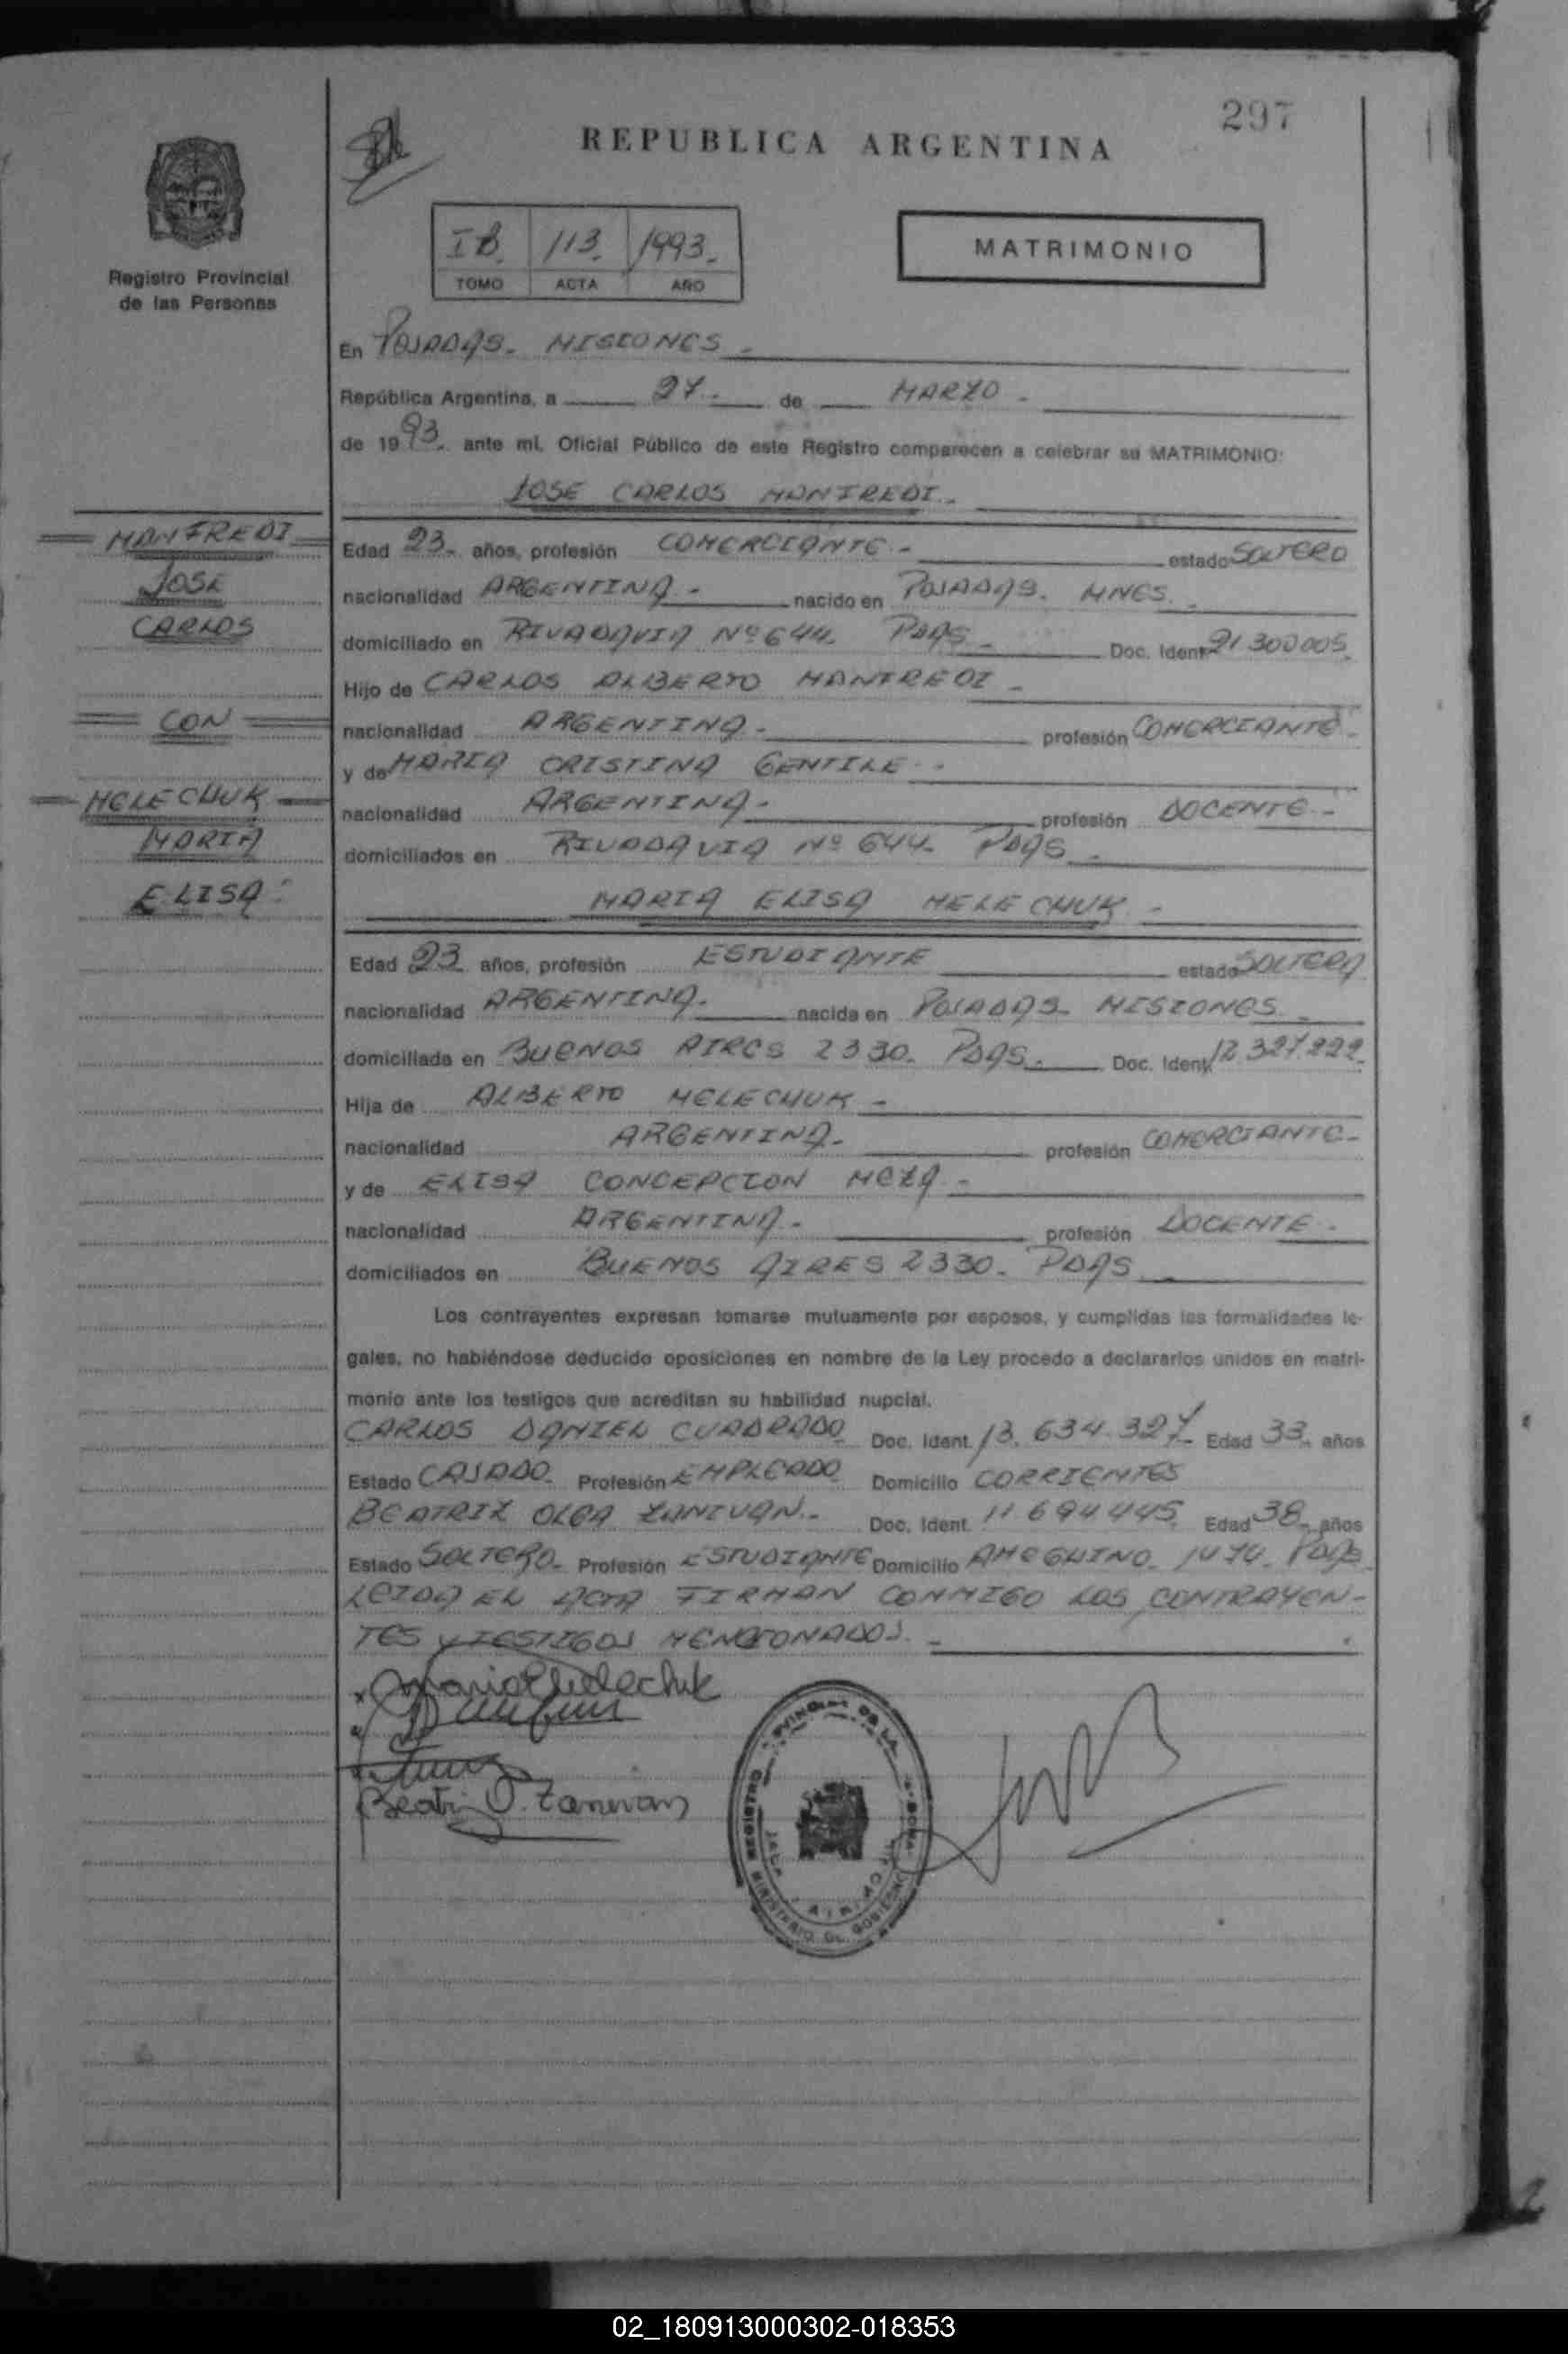 297
REPUBLICA ARGENTINA
Registro Provincial
de las Personas
IB. 113. 1993.
TOMO ACTA AÑO
MATRIMONIO
En POSADAS. MISIONES.
República Argentina, a 27. de MARZO.
de 1993. ante mí, Oficial Público de este Registro comparecen a celebrar su MATRIMONIO:
JOSE CARLOS MANFREDI.
MANFREDI
JOSE
CARLOS
CON
MELECHUK
MARIA
ELISA.
Edad 23. años, profesión COMERCIANTE. estado SOLTERO
nacionalidad ARGENTINA. nacido en POSADAS. MNES.
domiciliado en RIVADAVIA Nº 644. PDAS. Doc. Ident. 21.300005.
Hijo de CARLOS ALBERTO MANFREDI.
nacionalidad ARGENTINA. profesión COMERCIANTE.
y de MARIA CRISTINA GENTILE.
nacionalidad ARGENTINA. profesión DOCENTE.
domiciliados en RIVADAVIA Nº 644. PDAS.
MARIA ELISA MELECHUK.
Edad 23 años, profesión ESTUDIANTE estado SOLTERA
nacionalidad ARGENTINA. nacida en POSADAS. MISIONES.
domiciliada en BUENOS AIRES 2330. PDAS. Doc. Ident.
Hija de ALBERTO MELECHUK.
nacionalidad ARGENTINA. profesión COMERCIANTE.
y de ELISA CONCEPCION MEZA.
nacionalidad ARGENTINA. profesión DOCENTE.
domiciliados en BUENOS AIRES 2330. PDAS
Los contrayentes expresan tomarse mutuamente por esposos, y cumplidas las formalidades le-
gales, no habiéndose deducido oposiciones en nombre de la Ley procedo a declararlos unidos en matri-
monio ante los testigos que acreditan su habilidad nupcial.
CARLOS DANIEL CUADRADO Doc. Ident. 13.634.327. Edad 33. años
Estado CASADO. Profesión EMPLEADO Domicilio CORRIENTES
BEATRIZ OLGA ZANIVAN. Doc. Ident. 11 694445. Edad 38. años
Estado SOLTERO. Profesión ESTUDIANTE Domicilio AMEGHINO. 1474. PDAS
LEIDA EL ACTA FIRMAN CONMIGO LOS CONTRAYEN-
TES Y TESTIGOS MENCIONADOS.
Maria E Melechuk
Beatriz O. Zanivan
REGISTRO PROVINCIAL DE LAS PERSONAS
MINISTERIO DE GOBIERNO
02_180913000302-018353